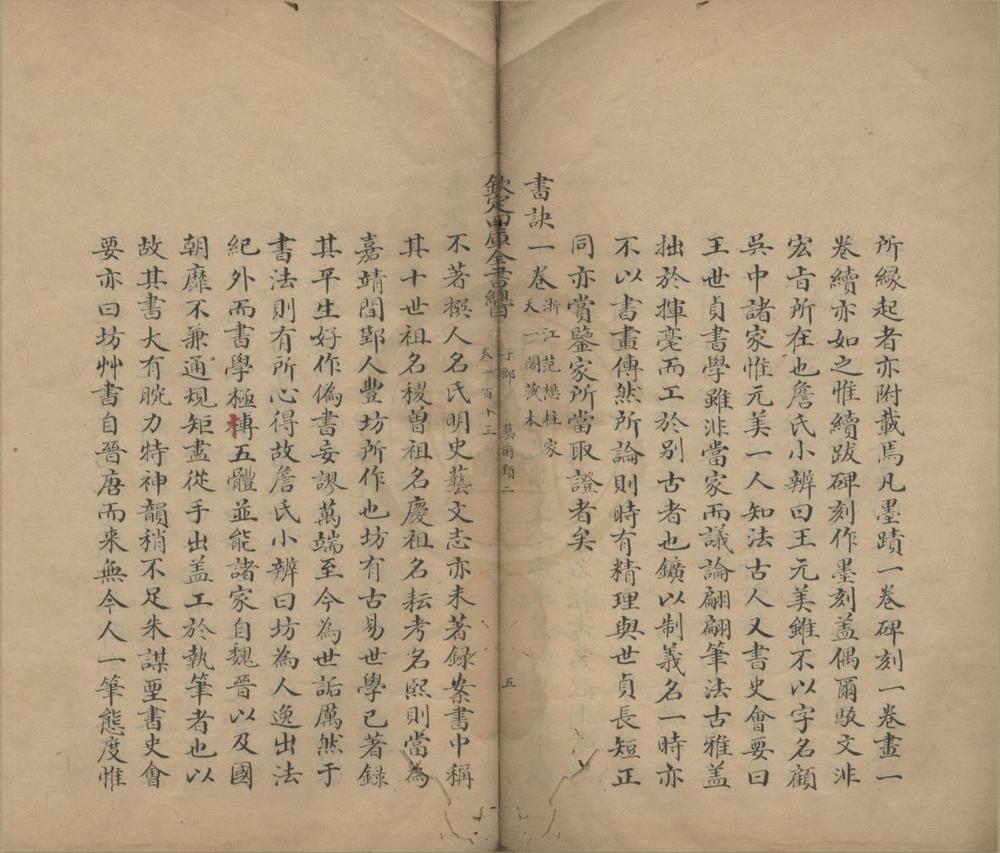 所緣起者亦附載焉凡墨蹟一卷碑刻一卷畫一
卷續亦如之惟續跋碑刻作墨刻盖偶爾駁文非
宏旨所在也詹氏小辨曰王元美雖不以字名顧
吳中諸家惟元美一人知法古人又書史會要曰
王世貞書學雖非當家而議論翩翩筆法古雅盖
拙於揮毫而工於别古者也鑛以制義名一時亦
不以書畫傳然所論則時有精理與世貞長短正
同亦賞鑒家所當取證者矣
書訣一卷
浙江范懋柱家
天一閣藏本
欽定四庫全書總目
子部 藝術類二
卷一百十三
五
不著撰人名氏明史藝文志亦未著録案書中稱
其十世祖名稷曾祖名慶祖名耘考名熙則當為
嘉靖間鄞人豐坊所作也坊有古易世學已著録
其平生好作偽書妄謬萬端至今為世詬厲然于
書法則有所心得故詹氏小辨曰坊為人逸出法
紀外而書學極博五體並能諸家自魏晉以及國
朝靡不兼通規矩盡從手出盖工於執筆者也以
故其書大有腕力特神韻稍不足朱謀垔書史會
要亦曰坊艸書自晉唐而來無今人一筆態度惟